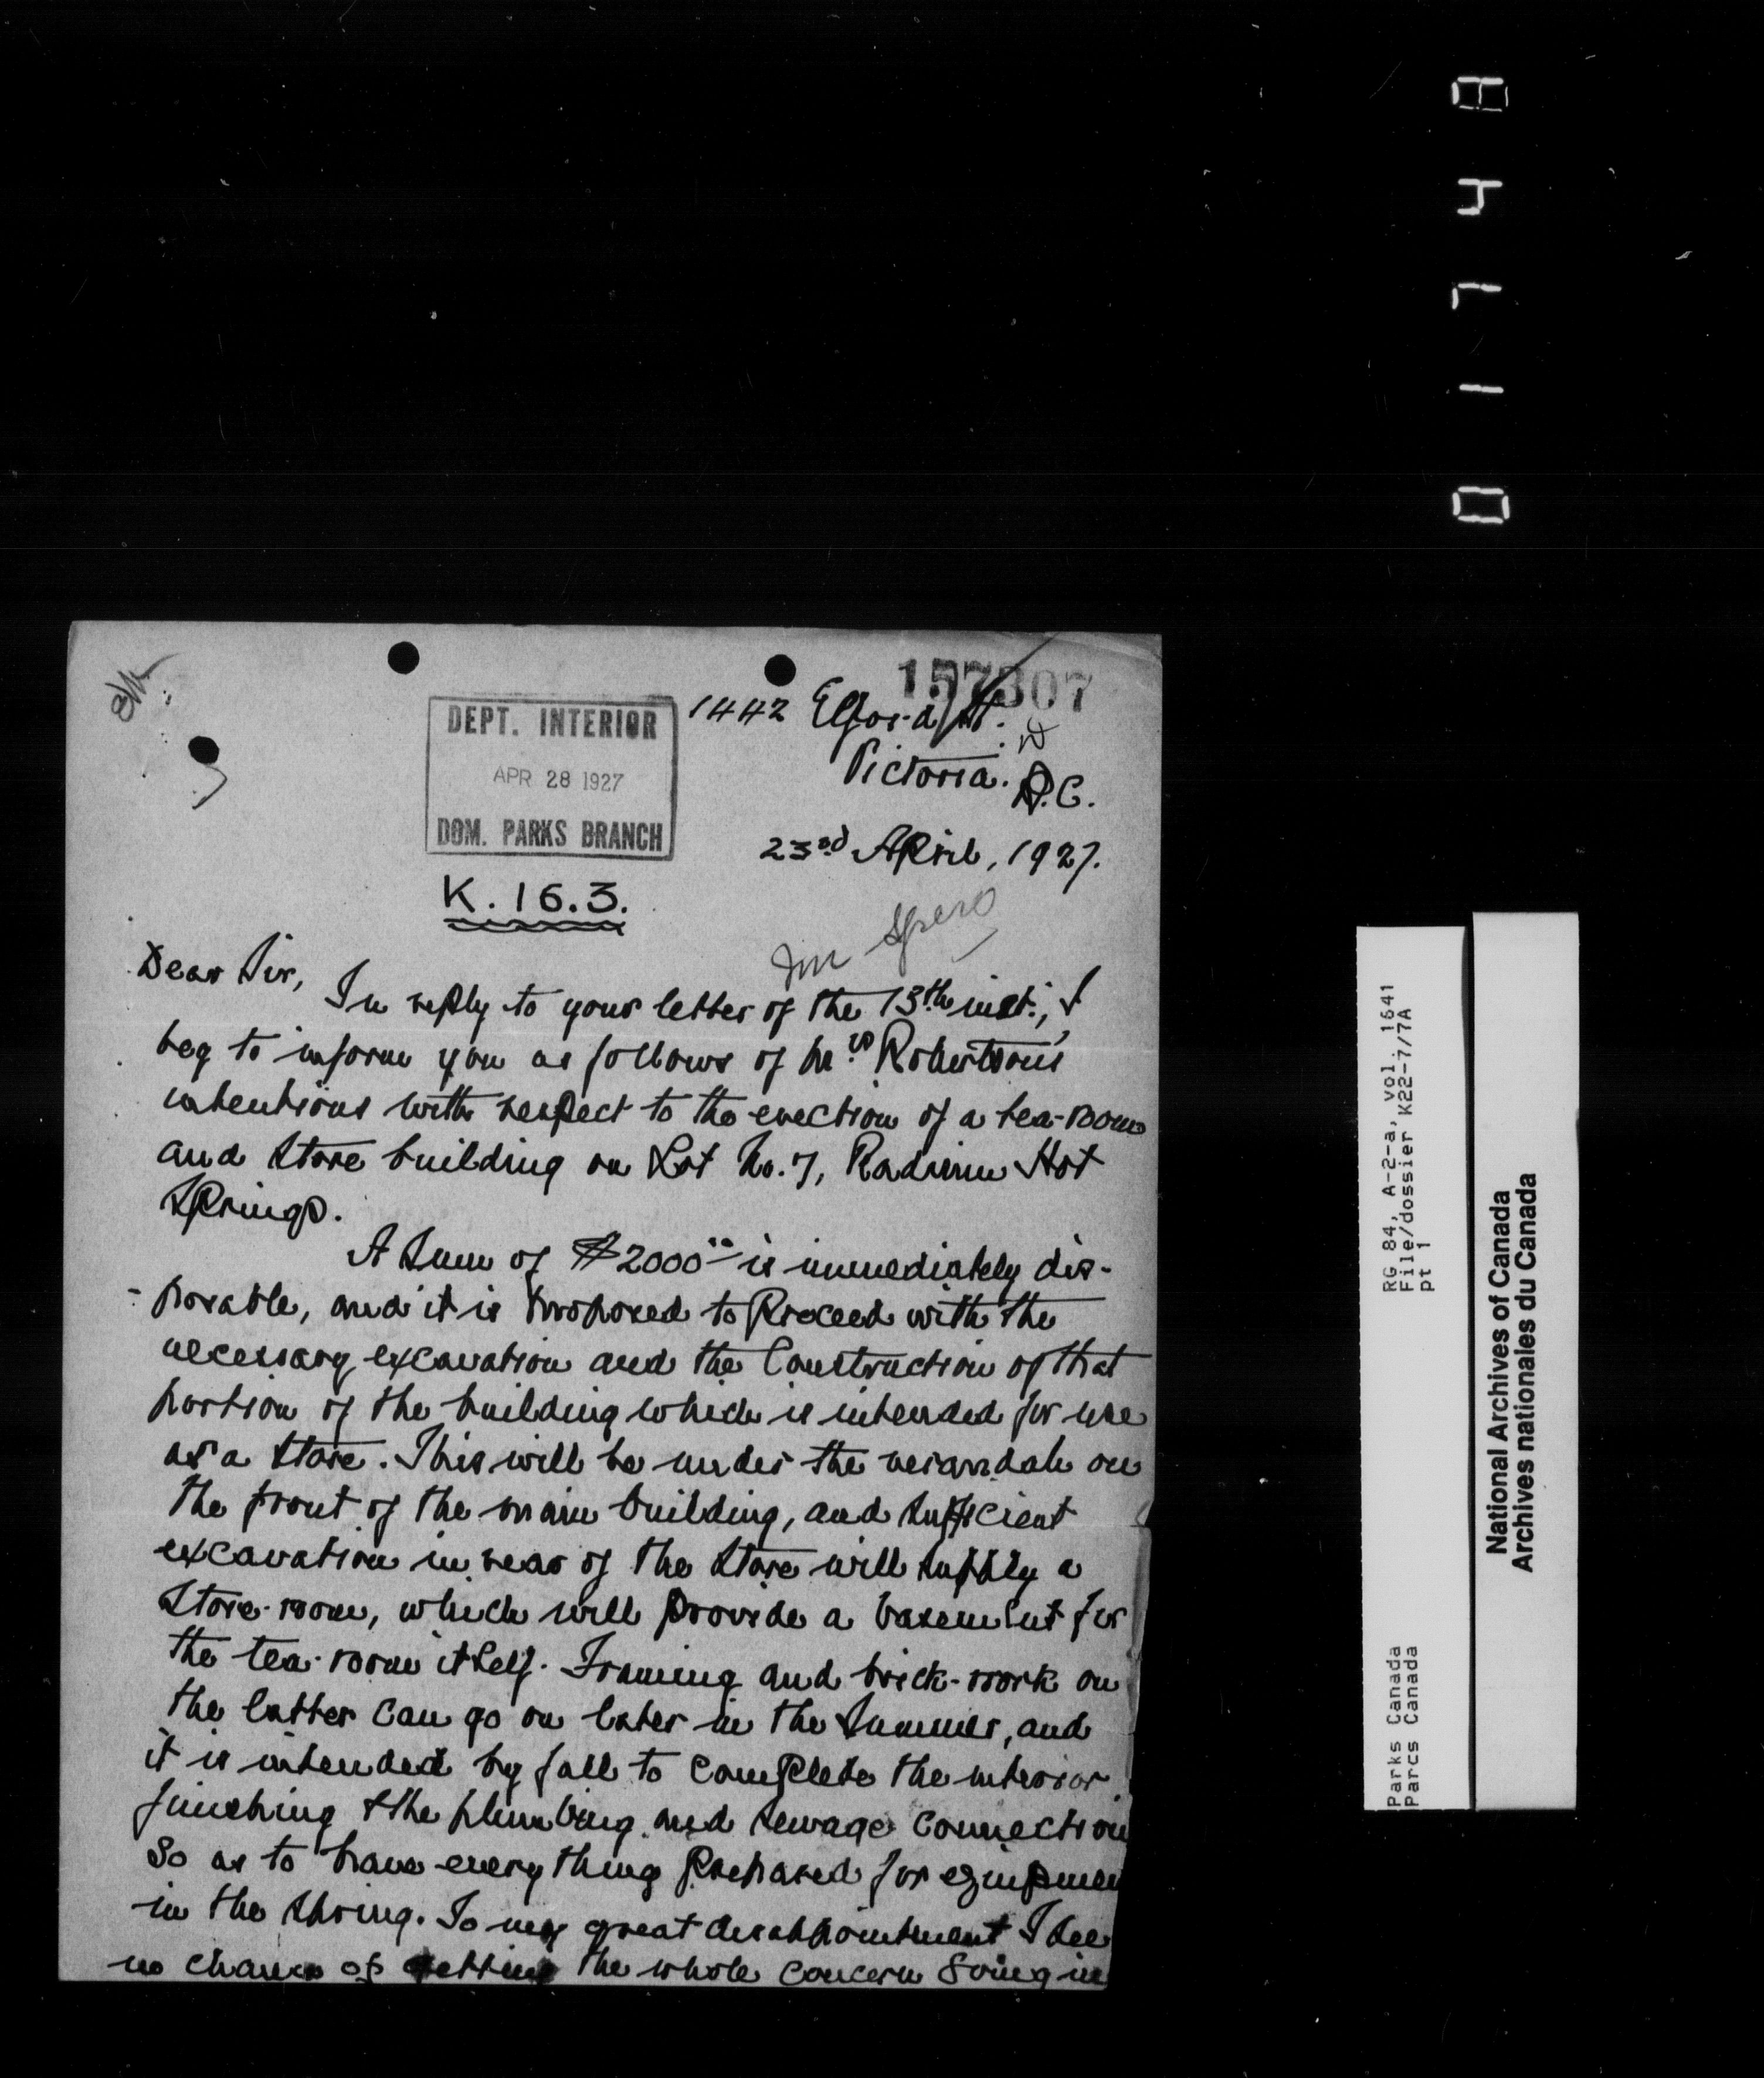 157307
DEPT. INTERIOR
APR 28 1927
DOM. PARKS BRANCH
1442 Elford St.
Victoria. B.C.
23rd April, 1927.
K.16.3.
Dear Sir,
In reply to your letter of the 13th inst., I
beg to inform you as follows of Mrs Robertson's
intentions with respect to the erection of a tea-room
and store building on Lot No. 7, Radium Hot
Springs.
A sum of $2000.00 is immediately dis-
-posable, and it is proposed to proceed with the
necessary excavation and the construction of that
portion of the building which is intended for use
as a store. This will be under the verandah on
the front of the main building, and sufficient
excavation in rear of the store will supply a
store-room, which will provide a basement for
the tea-room itself. Framing and brick-work on
the latter can go on later in the summer, and
it is intended by fall to complete the interior
finishing & the plumbing and sewage connection
so as to have everything prepared for equipmen
in the spring. To my great disappointment I see
no chance of getting the whole concern going in
RG 84, A-2-a, vol. 1641
File/dossier K22-7/7A
pt 1
Parks Canada
Parcs Canada
National Archives of Canada
Archives nationales du Canada